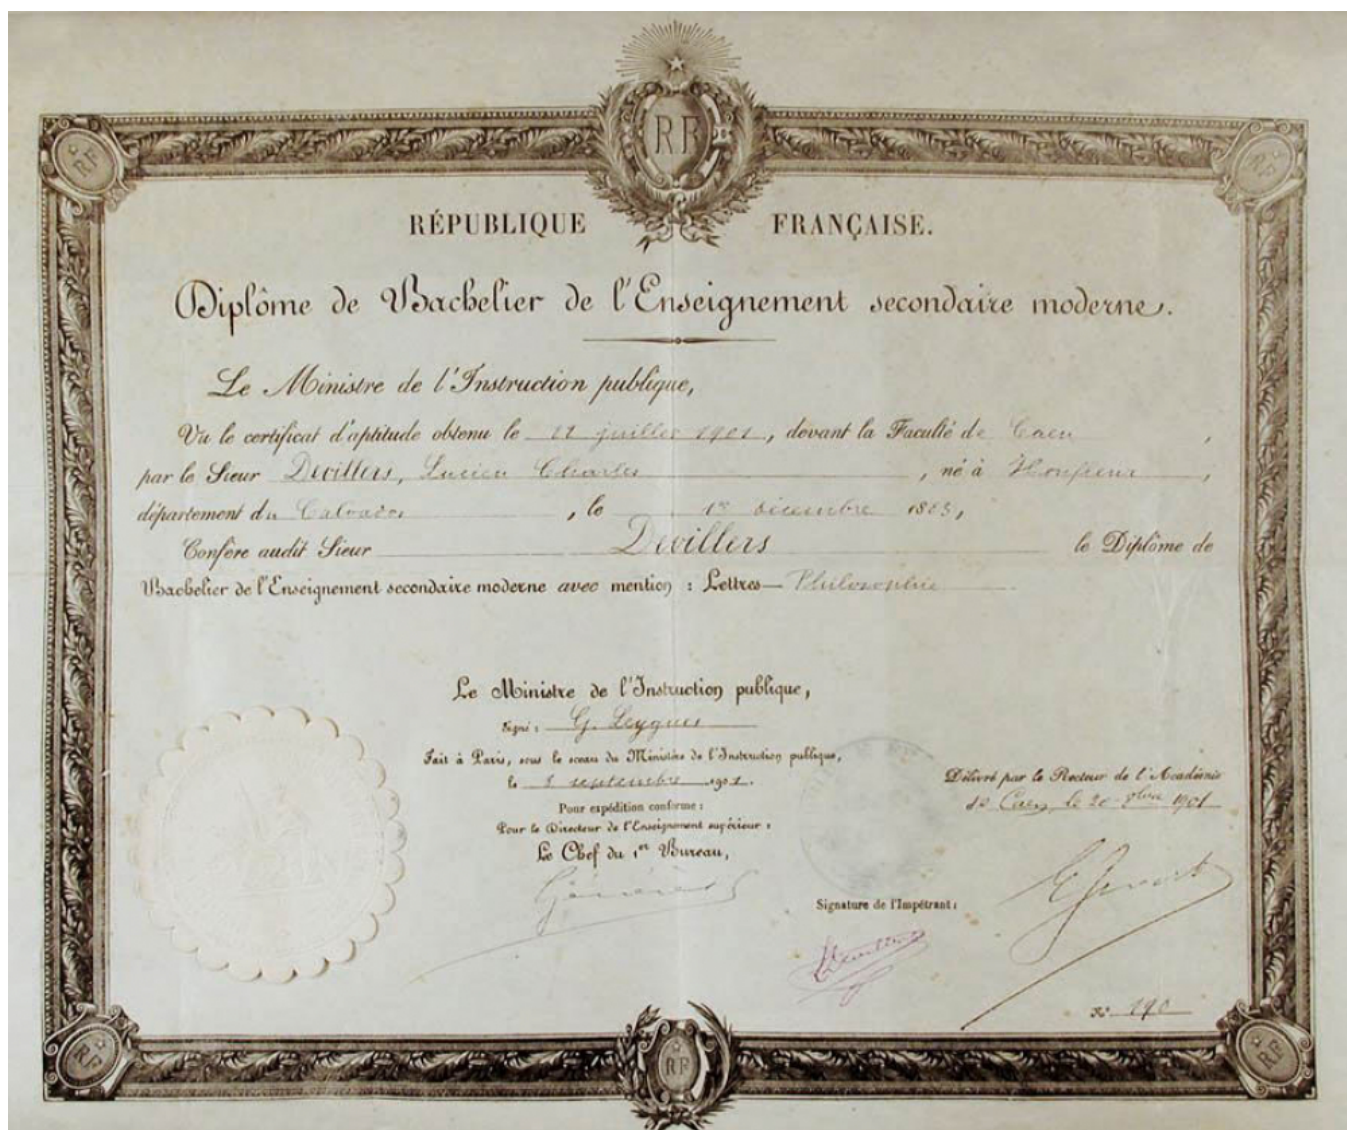 RF
RF
RF
RÉPUBLIQUE FRANÇAISE.
Diplôme de Bachelier de l'Enseignement secondaire moderne.
Le Ministre de l'Instruction publique,
Vu le certificat d'aptitude obtenu le juillet 1901, devant la Faculté de Caen,
par le Sieur Devillers, Lucien Charles, né à Honfleur,
département du Calvados, le 1er décembre
Confère audit Sieur Devillers le Diplôme de
Bachelier de l'Enseignement secondaire moderne avec mention : Lettres — Philosophie
Le Ministre de l'Instruction publique,
Signé : G. Leygues
Fait à Paris, sous le sceau du Ministère de l'Instruction publique,
le septembre 1901.
Pour expédition conforme :
Pour le Directeur de l'Enseignement supérieur :
Le Chef du 1er Bureau,
Délivré par le Recteur de l'Académie
de Caen, le 20 1901
Signature de l'Impétrant :
Devillers
N° 190
RF
RF
RF